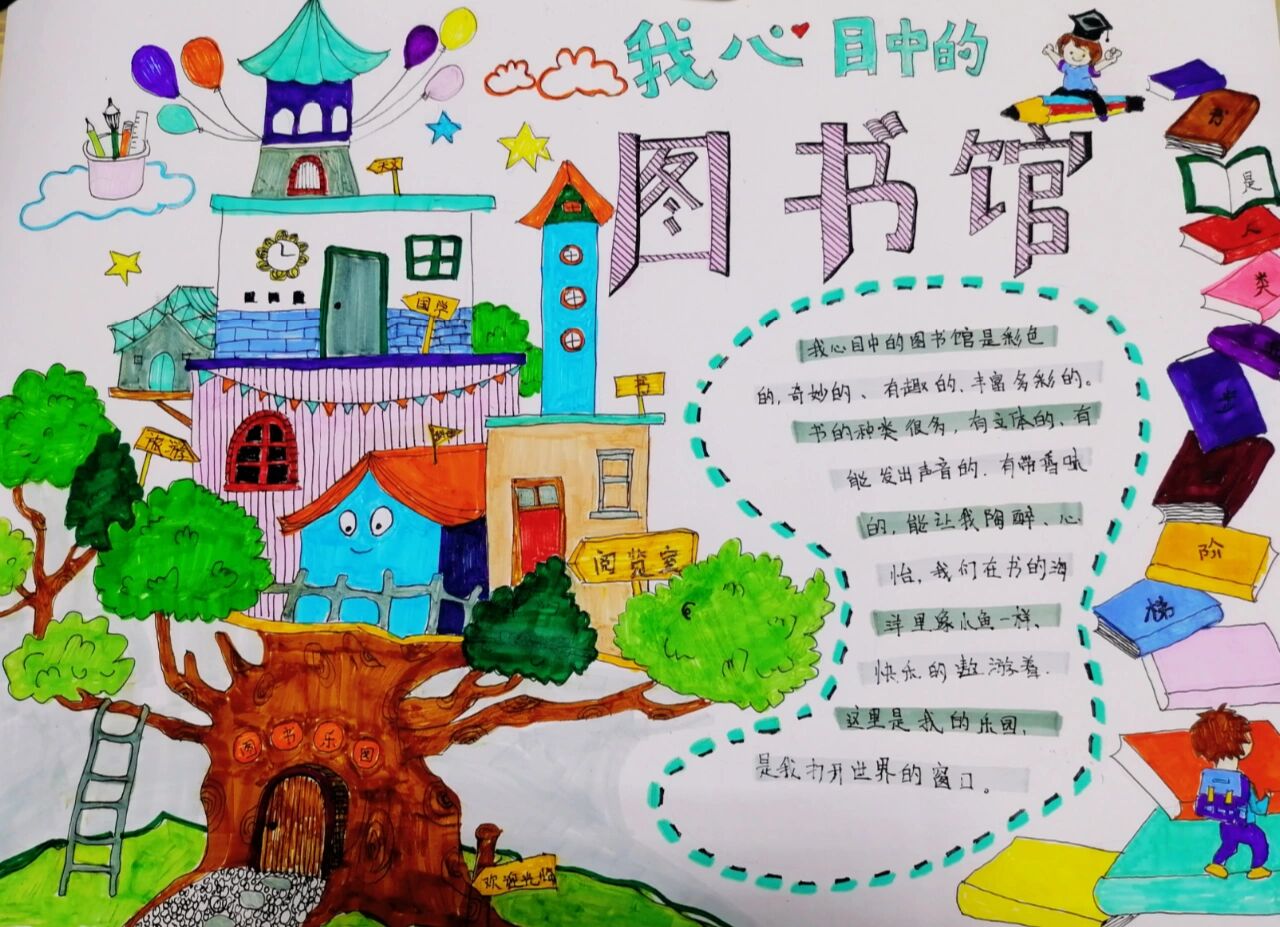 我心目中的
图书馆
天文
国学
书
旅游
阅览室
图书乐园
欢迎光临
我心目中的图书馆是彩色
的,奇妙的、有趣的、丰富多彩的。
书的种类很多,有立体的、有
能发出声音的、有带香味
的,能让我陶醉、心
怡,我们在书的海
洋里像小鱼一样、
快乐的遨游着.
这里是我的乐园,
是我打开世界的窗口。
书
是
人
类
进
步
的
阶
梯